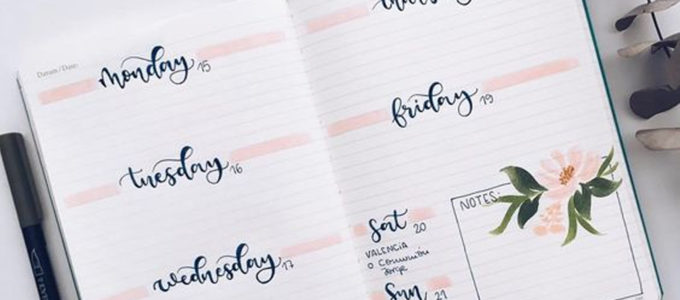 Datum / Date:
monday 15
tuesday 16
wednesday 17
thursday
friday 19
sat 20
VALENCIA
o Comunión
Jorge
Sun 21
NOTES: